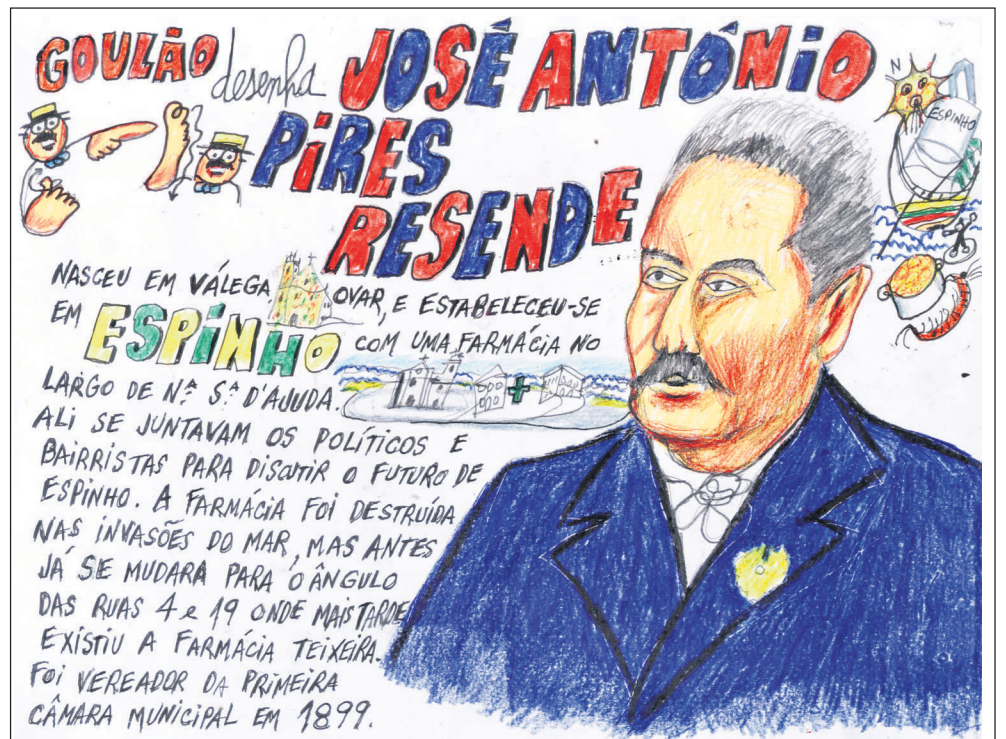 GOULÃO desenha JOSÉ ANTÓNIO
PIRES
RESENDE
N
ESPINHO
NASCEU EM VÁLEGA OVAR, E ESTABELECEU-SE
EM ESPINHO COM UMA FARMÁCIA NO
LARGO DE Nª Sª D'AJUDA.
ALI SE JUNTAVAM OS POLÍTICOS E
BAIRRISTAS PARA DISCUTIR O FUTURO DE
ESPINHO. A FARMÁCIA FOI DESTRUÍDA
NAS INVASÕES DO MAR, MAS ANTES
JÁ SE MUDARA PARA O ÂNGULO
DAS RUAS 4 e 19 ONDE MAIS TARDE
EXISTIU A FARMÁCIA TEIXEIRA.
FOI VEREADOR DA PRIMEIRA
CÂMARA MUNICIPAL EM 1899.